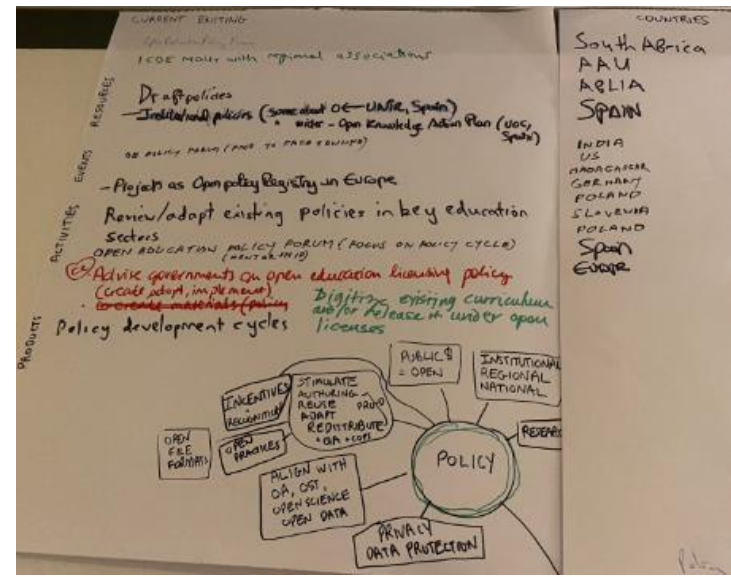 CURRENT EXISTING
ICDE MOUs with regional associations
RESOURCES
Draft policies
Institutional policies (some about OE - UNIR, Spain)
wider - Open Knowledge Action Plan (UOC, Spain)
EVENTS
OE POLICY FORUM (FACE TO FACE
- Projects as Open policy Registry in Europe
ACTIVITIES
Review/adapt existing policies in key education
sectors
OPEN EDUCATION POLICY FORUM (FOCUS ON POLICY CYCLE)
Advise governments on open education licensing policy
(create adopt, implement)
co-create materials (policy
Digitize existing curriculum
and/or release it under open
licenses
PRODUCTS
Policy development cycles
INCENTIVES
RECOGNITION
STIMULATE
AUTHORING
REUSE
ADAPT
REDISTRIBUTE
OPEN
FILE
FORMATS
OPEN
PRACTICES
PUBLIC $
= OPEN
INSTITUTIONAL
REGIONAL
NATIONAL
RESEARC
POLICY
ALIGN WITH
OA, OST,
OPEN SCIENCE
OPEN DATA
PRIVACY
DATA PROTECTION
COUNTRIES
South Africa
AAU
AfLIA
SPAIN
INDIA
US
MADAGASCAR
GERMANY
POLAND
SLOVENIA
POLAND
Spain